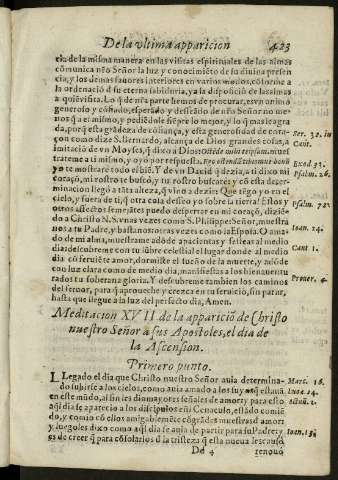 De la vltima apparicion 423
cia de la misma manera en las visitas espirituales de las almas
comunica nro Señor la luz y conocimiēto de su diuina presen
cia, y los demas fauores interiores en varios modos, cõforme a
la ordenació de su eterna sabiduria, ya la disposiciõ de las almas
a quiē visita. Lo q̃ de nra parte hemos de procurar, es vn animo
generoso y cõfiado, esperado y desseãdo de nro Señor no me-
nos q̃ a el mismo, y pediēdole siēpre lo mejor, y lo q̃ mas le agra
da, porq̃ esta grãdeza de cõfiança, y esta generosidad de cora-
çon como dize S. Bernardo, alcança de Dios grandes cosas, a
imitaciõ de vn Moyses, q̃ dixo a Dios
trateme a ti mismo, y oyó por respuesta.
te mostrare todo el biē. Y de vn Dauid q̃ dezia, a ti dixo mi
coraçõ, mi rostro te buscó, y tu rostro buscare: y cõ esta deter-
minacion llegó a tãta alteza, q̃ vino a dezir: Que tēgo yo en el
cielo, y fuera de ti, q̃ otra cosa desseo yo sobre la tierra? Estos y
otros affectos semejãtes puedo despertar en mi coraçõ, dizié-
do a Christo N. S. vnas vezes como S. Philippe: Señor, muestra
nos a tu Padre, y bastanos: otras vezes como la Esposa. O ama-
do de mi alma, muestrame adõde apacientas y sesteas al medio
dia: descubreme con tu lũbre celestial el lugar donde al medio
dia cõ feruiēte amor, dormiste el sueño de la muerte, y adõde
con luz muy clara como de medio dia, manifiestas a los bienauentu
rados tu soberana gloria. Y descubreme tambien los caminos
del feruor, para q̃ aproueche y crezca en tu seruicio, sin parar,
hasta que llegue a la luz del perfecto dia, Amen.
Meditacion XVII de la apparició de Christo
nuestro Señor a sus Apostoles, el dia de
la Ascension.
Primero punto.
LLegado el dia que Christo nuestro Señor auia determina-
do subirse a los cielos, como auia amado a los suyos
en este mũdo, al fin les dio mayores señales de amor: y para esto
aq̃l dia se aparecio a los discipulos en el Cenaculo, estãdo comié
do, y comio cõ ellos amigablemēte
y luego les dixo como aq̃l dia se auia de partir para su Padre: y
es de creer q̃ para cõsolarlos d la tristeza q̃ esta nueua les causó
Dd 4 renouó
Ser. 32. in
Cant.
Exod 33.
Psalm. 26.
Psalm. 72.
Ioan. 14.
Cant 1.
Prouer. 4.
Marc. 16.
Lucæ 24.
Ioan, 13.